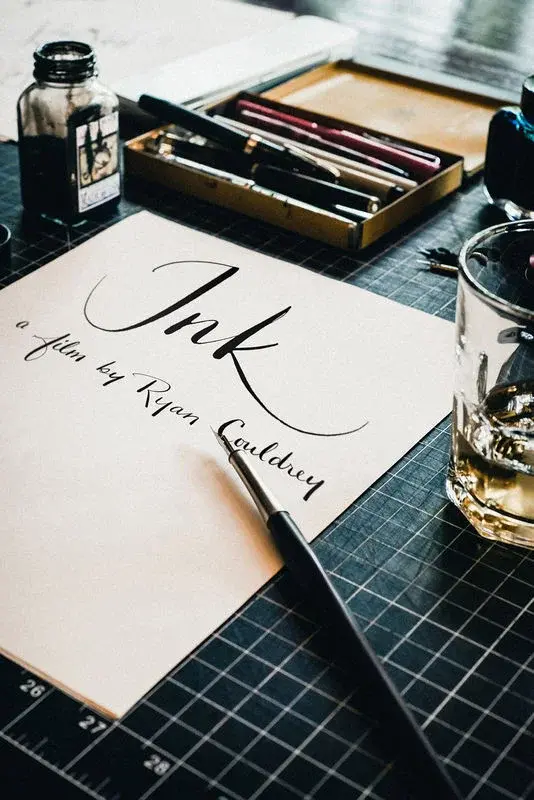 Ink
a film by Ryan Couldrey
26
27
28